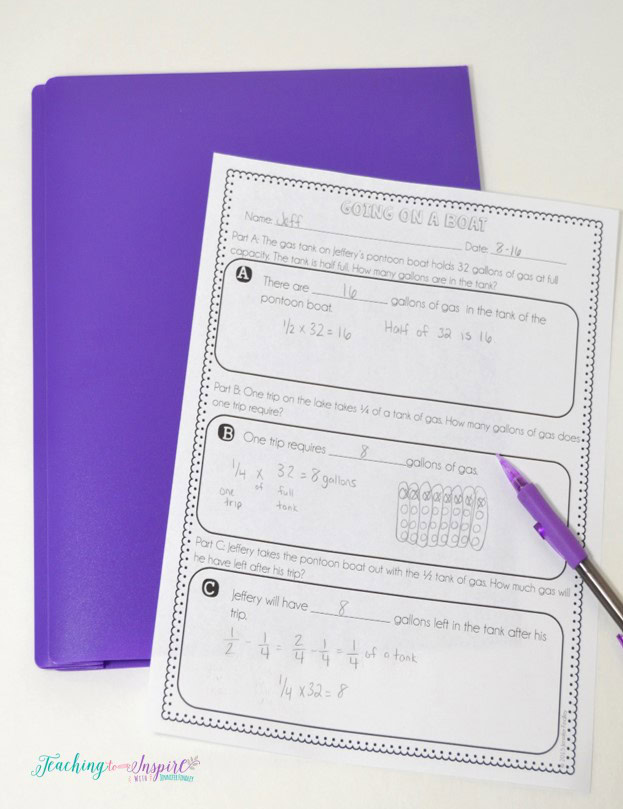 GOING ON A BOAT
Name: Jeff Date: 8-16
Part A: The gas tank on Jeffery's pontoon boat holds 32 gallons of gas at full
capacity. The tank is half full. How many gallons are in the tank?
A
There are 16 gallons of gas in the tank of the
pontoon boat.
1/2 x 32 = 16 Half of 32 is 16
Part B: One trip on the lake takes ¼ of a tank of gas. How many gallons of gas does
one trip require?
B
One trip requires 8 gallons of gas.
1/4 x 32 = 8 gallons
of
one full
trip tank
Part C: Jeffery takes the pontoon boat out with the ½ tank of gas. How much gas will
he have left after his trip?
C
Jeffery will have 8 gallons left in the tank after his
trip.
1/2 - 1/4 = 2/4 - 1/4 = 1/4 of a tank
1/4 x 32 = 8
Teaching to Inspire
WITH JENNIFER FINDLEY